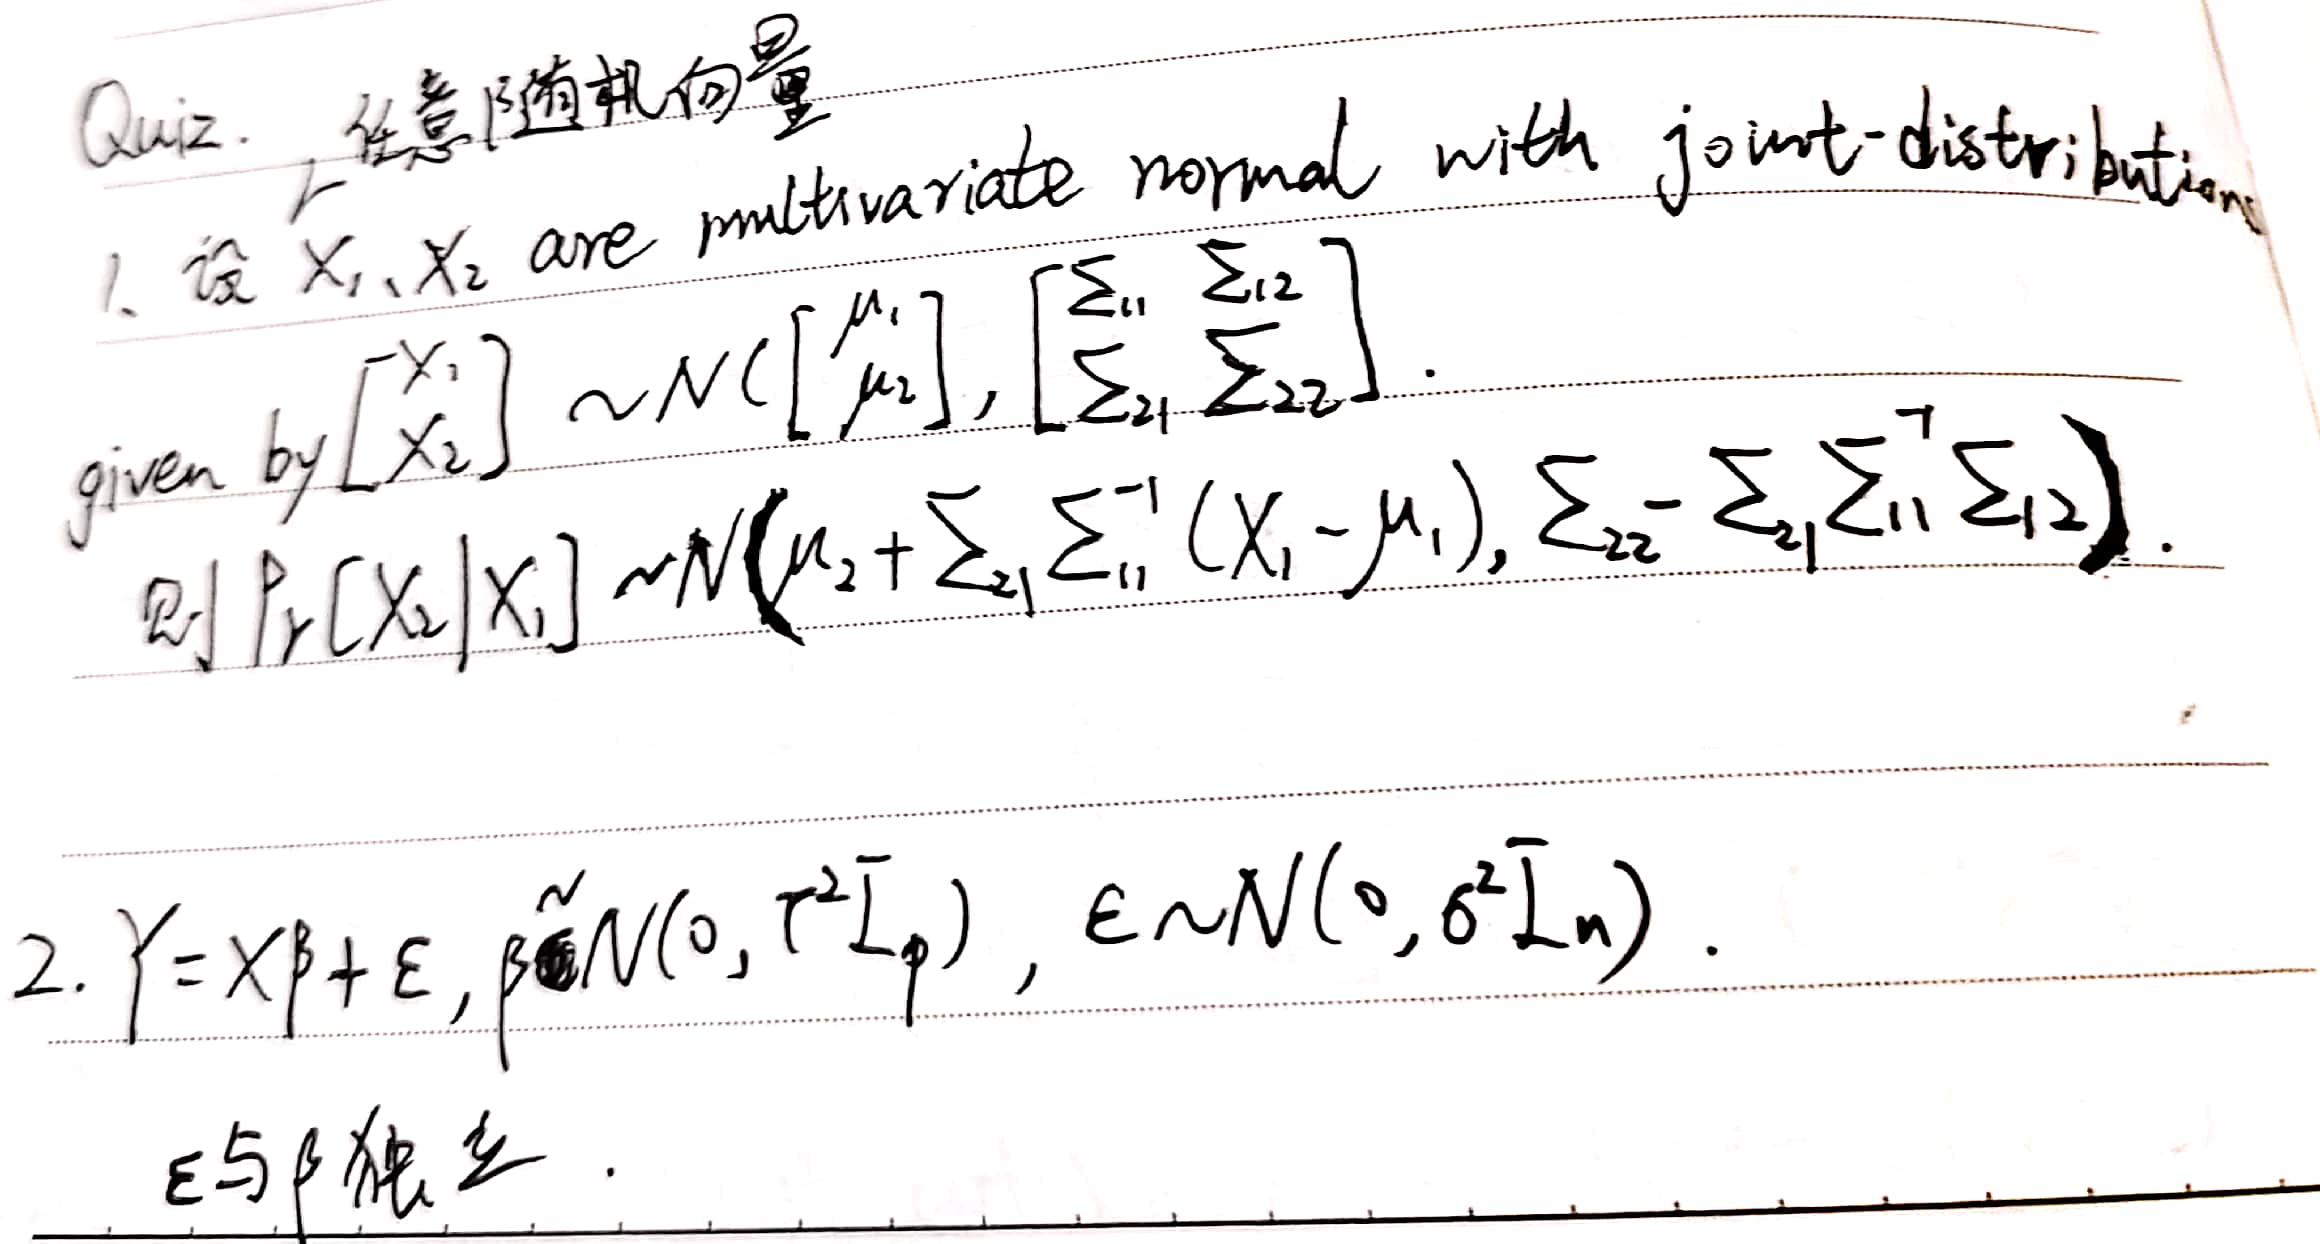 Quiz. 任意随机向量
1、设 X₁、X₂ are multivariate normal with joint-distributions
given by [X₁ X₂] ~N([μ₁ μ₂], [Σ₁₁ Σ₁₂ Σ₂₁ Σ₂₂].
则 Pr[X₂|X₁] ~N(μ₂+Σ₂₁Σ₁₁⁻¹(X₁-μ₁), Σ₂₂-Σ₂₁Σ₁₁⁻¹Σ₁₂).
2. Y=Xβ+ε, β~N(0, τ²Iₚ), ε~N(0, σ²Iₙ).
ε与β独立.